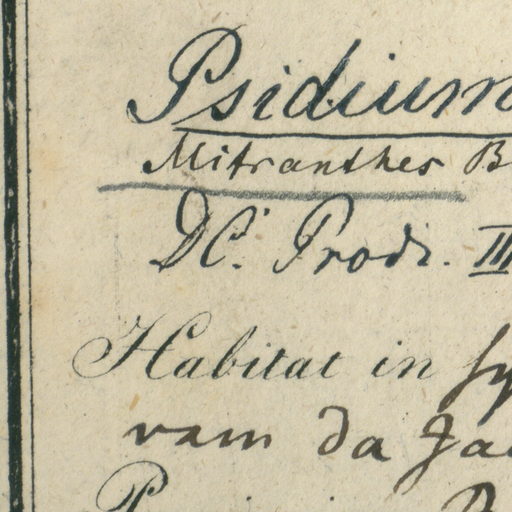 Psidium
Mitranthes B
DC. Prodr. III
Habitat in sy
vam da Ja
P